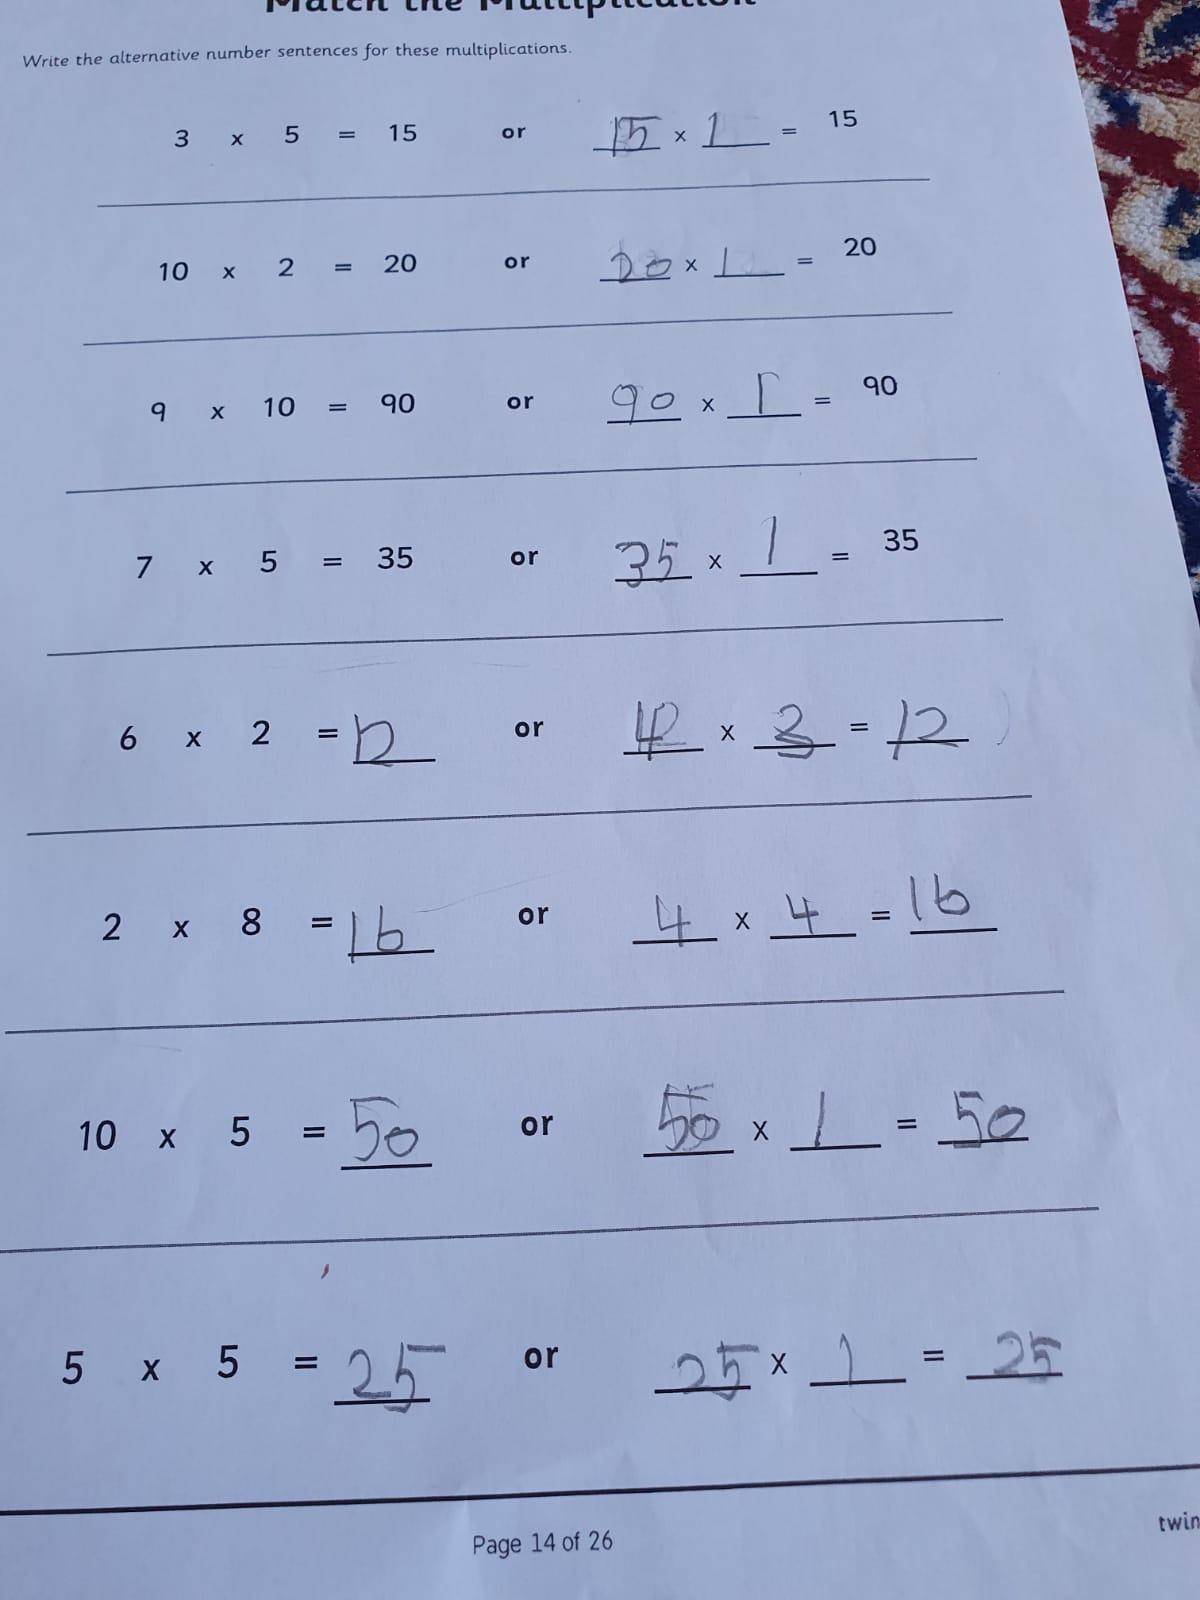 Match the Multiplication
Write the alternative number sentences for these multiplications.
3 x 5 = 15 or 15 x 1 = 15
10 x 2 = 20 or 20 x 1 = 20
9 x 10 = 90 or 90 x 1 = 90
7 x 5 = 35 or 35 x 1 = 35
6 x 2 = 12 or 4 x 3 = 12
2 x 8 = 16 or 4 x 4 = 16
10 x 5 = 50 or 50 x 1 = 50
5 x 5 = 25 or 25 x 1 = 25
Page 14 of 26
twin